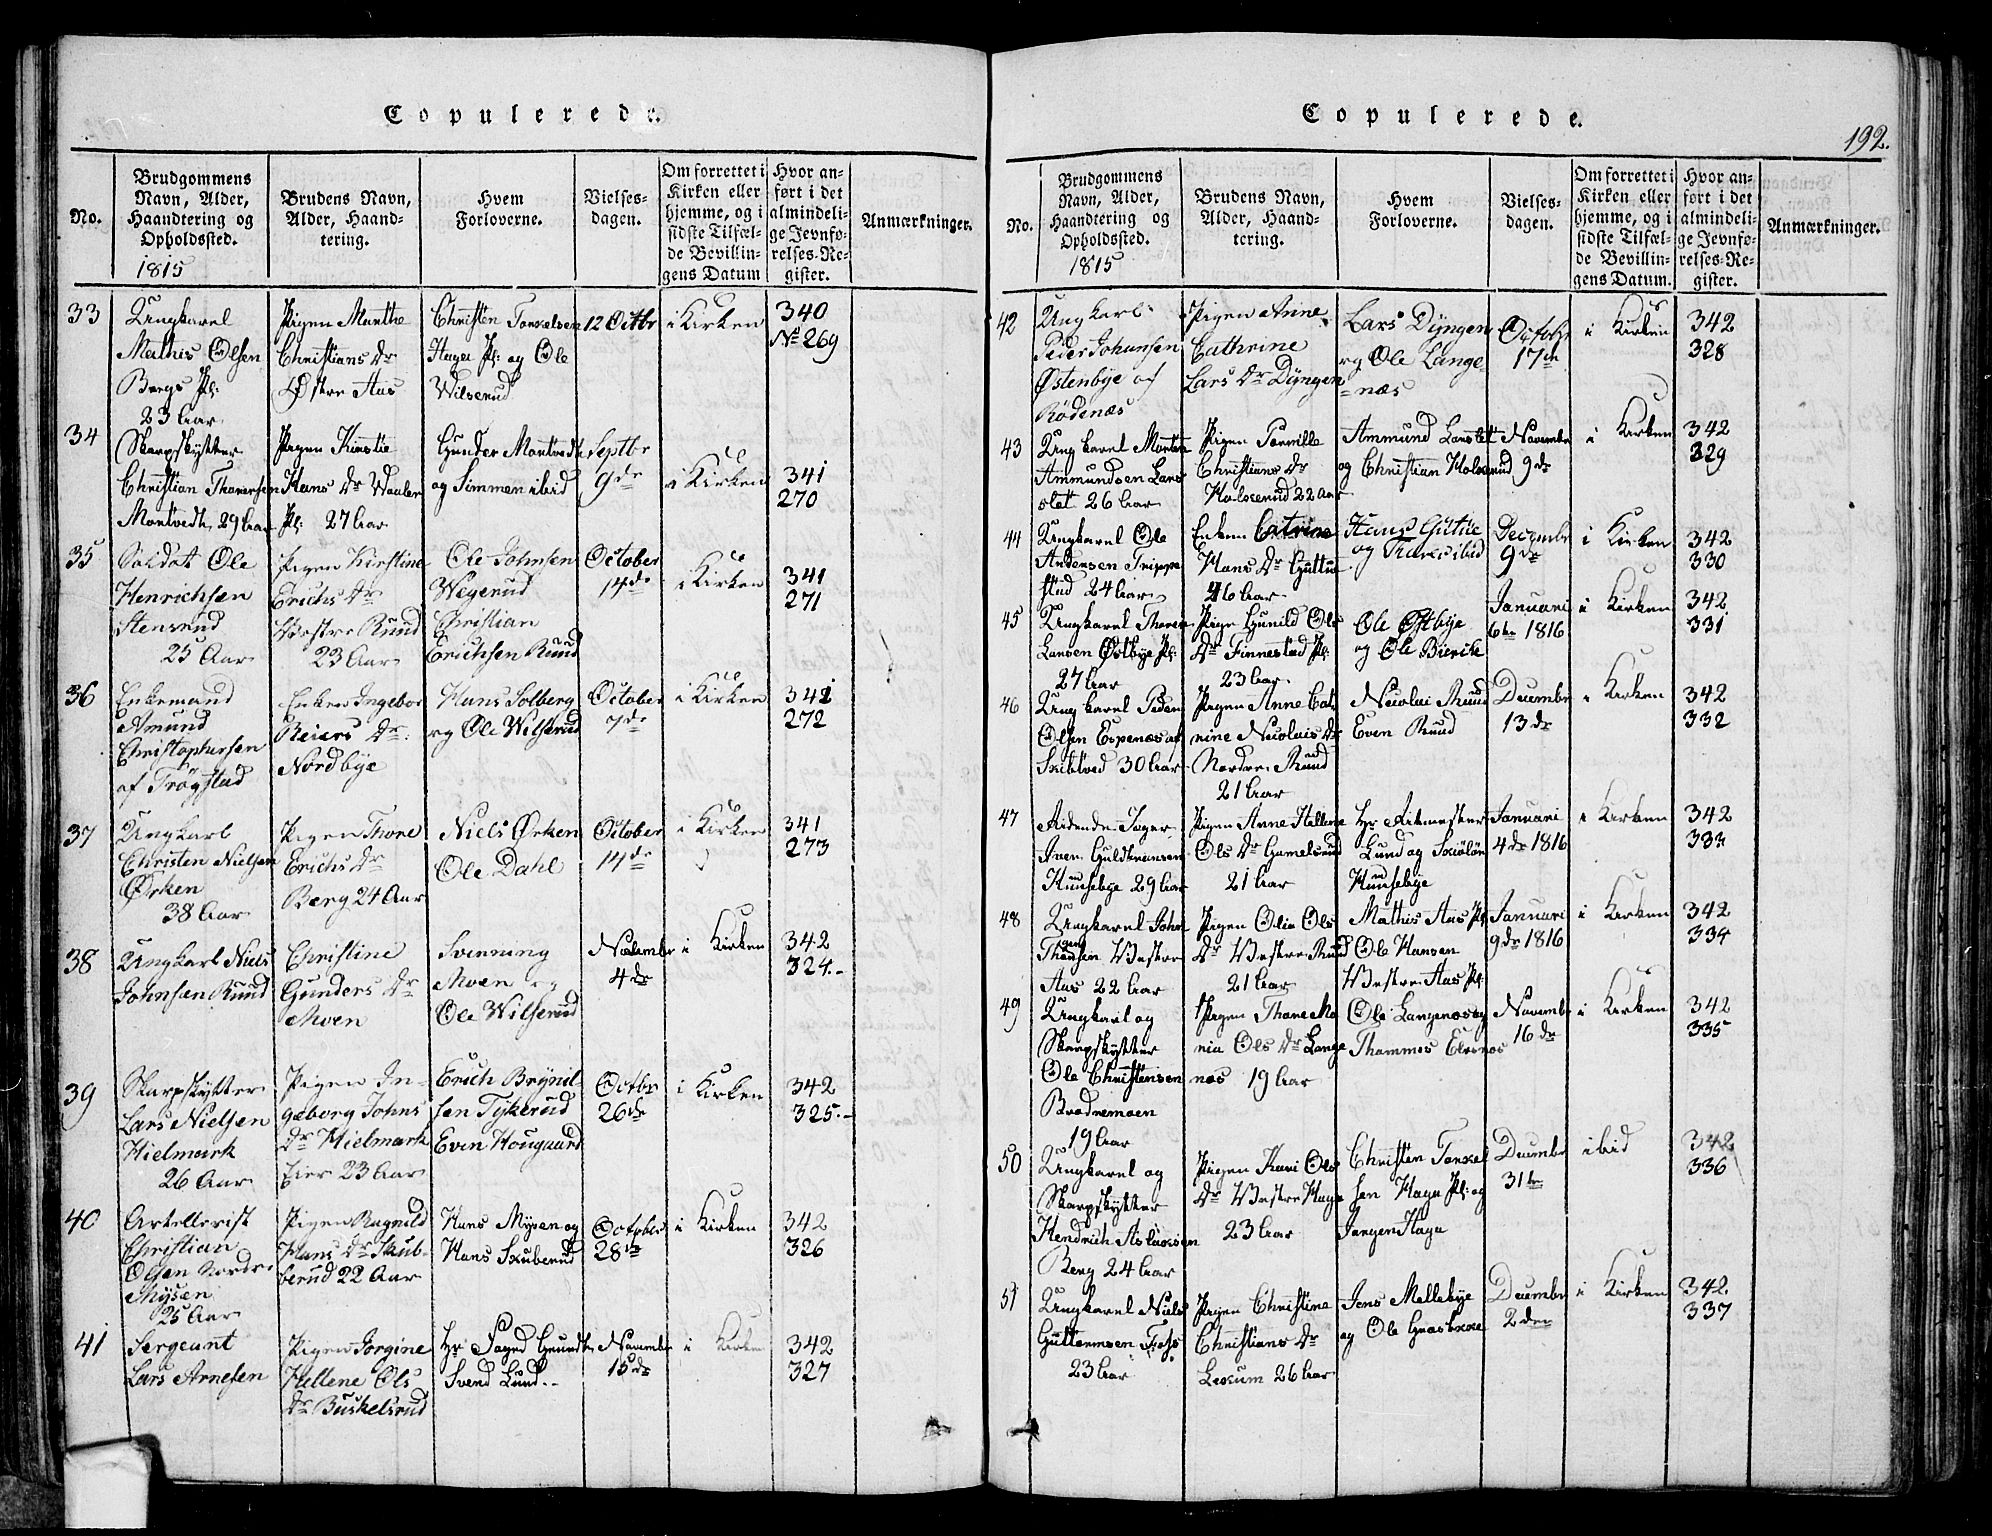 Copulerede.
No.
Brudgommens
Navn, Alder,
Haandtering og
Opholdssted.
1815
Brudens Navn,
Alder, Haand-
tering.
Hvem
Forloverne.
Vielses-
dagen.
Om forrettet i
Kirken eller
hjemme, og i
sidste Tilfæl-
de Bevillin-
gens Datum
Hvor an-
ført i det
almindeli-
ge Jevnfø-
relses-Re-
gister.
Anmærkninger.
33
Ungkarel
Mathis Olsen
Bergs Pl:
23 Aar
Pigen Marthe
Christians Dr
Østre Aas
Christen Torkelsen
Haga Pl: og Ole
Wilserud
12 Octbr
i Kirken
340
No 269
34
Skarpskytter
Christian Thoresen
Montvedt 29 Aar
Pigen Kirstie
Hans Dr Waaler
Pl: 27 Aar
Gunder Montvedt
og Simmen ibid
Septbr
9de
i Kirken
341
270
35
Soldat Ole
Henrichsen
Stensrud
25 Aar
Pigen Kirstine
Erichs Dr
Westre Ruud
23 Aar
Ole Johnsen
Wegerud
Christian
Erichsen Ruud
October
14de
i Kirken
341
271
36
Enkemand
Amund
Christophersen
af Trøgstad
Enken Ingebor
Reiers Dr:
Nordbye
Hans Solberg
og Ole Wilserud
October
7de
i Kirken
341
272
37
Ungkarl
Christen Nielsen
Ørken
38 Aar
Pigen Thore
Erichs Dr
Berg 24 Aar
Niels Ørken
Ole Dahl
October
14de
i Kirken
341
273
38
Ungkarl Niels
Johnsen Ruud
Christine
Gunders Dr
Moen
Svenning
Moen og
Ole Wilserud
November
4de
i Kirken
342
324.-
39
Skarpskytter
Lars Nielsen
Hielmark
26 Aar
Pigen In-
geborg Johns
Dr Hielmark
Eier 23 Aar
Erich Brynil-
sen Tykerud
Even Hougaard
Octbr
26de
i Kirken
342
325.-
40
Artellerist
Christian
Olsen Nordre
Mysen
25 Aar
Pigen Ragnild
Hans Dr Skub-
berud 22 Aar
Hans Mysen og
Hans Skuberud
October
28de
i Kirken
342
326
41
Sergeant
Lars Arnesen
Pigen Jorgine
Hellene Ols
Dr Buskelsrud
Svend Lund.-
Novembr
15de
i Kirken
342
327
Copulerede.
192.
No.
Brudgommens
Navn, Alder,
Haandtering og
Opholdssted.
1815
Brudens Navn,
Alder, Haand-
tering.
Hvem
Forloverne.
Vielses-
dagen.
Om forrettet i
Kirken eller
hjemme, og i
sidste Tilfæl-
de Bevillin-
gens Datum.
Hvor an-
ført i det
almindeli-
ge Jevnfø-
relses-Re-
gister.
Anmærkninger.
42
Ungkarl
Peder Johansen
Østenbye af
Rødenæs
Pigen Anne
Cathrine
Lars Dr Dyngen
Lars Dyngen
og Ole Lange-
=næs
Octobr
17de
i Kirken
342
328
43
Ungkarel Morten
Ammundsen Lars
slet 26 Aar
Pigen Pernille
Christians Dr
Holserud 22 Aar
Ammund Larslet
og Christian Holserud
Novembr
9de
i Kirken
342
329
44
Ungkarel Ole
Andersen Trippe
stad 24 Aar
Enken Catrine
Hans Dr Guttu
26 Aar
Hans Guttu
og ibid
Decembr
9de
i Kirken
342
330
45
Ungkarel Thoren
Larsen Østbye Pl:
27 Aar
Pige Gunild Ols
Dr Finnestad Pl:
23 Aar
Ole Østbye
og Ole Biercke
Januari
6te 1816
i Kirken
342
331
46
Ungkarel Peder
Olsen Espenæs af
Skibtved 30 Aar
Pigen Anne Cat
rine Nicolais Dr
Nordre Ruud
21 Aar
Nicolai Ruud
Even Ruud
Decembr
13de
i Kirken
342
332
47
Ridende Jæger
Iver Guldbransen
Huusebye 29 Aar
Pigen Anne Hellene
Ols Dr Gamelsrud
21 Aar
Hr Ritmester
Lund og
Huusebye
Januari
4de 1816
i Kirken
342
333
48
Ungkarel John
Thorsen Westre
Aas 22 Aar
Pigen Olia Ols
Dr Westre Ruud
21 Aar
Mathis Aas Pl
Ole Hansen
Westre Aas Pl:
Januari
9de 1816
i Kirken
342
334
49
Ungkarl og
Skarpskytter
Ole Christensen
Brodremoen
19 Aar
Pigen Thore Ma
ria Ols Dr Lange
næs 19 Aar
Ole Langenæs og
Thommes
Novembr
16de
i Kirken
342
335
50
Ungkarel og
Skarpskytter
Hendrich Aslaksen
Berg 24 Aar
Pigen Kari Ols
Dr Westre Haga
23 Aar
Christen Torkel
sen Haga Pl: og
Jørgen Haga
Decembr
31te
ibid
342
336
51
Ungkarel Niels
Guttormsen Foss
23 Aar
Pigen Christine
Christians Dr
Lekum 26 Aar
Jens Mellebye
og Ole
Decembr
2den
i Kirken
342
337